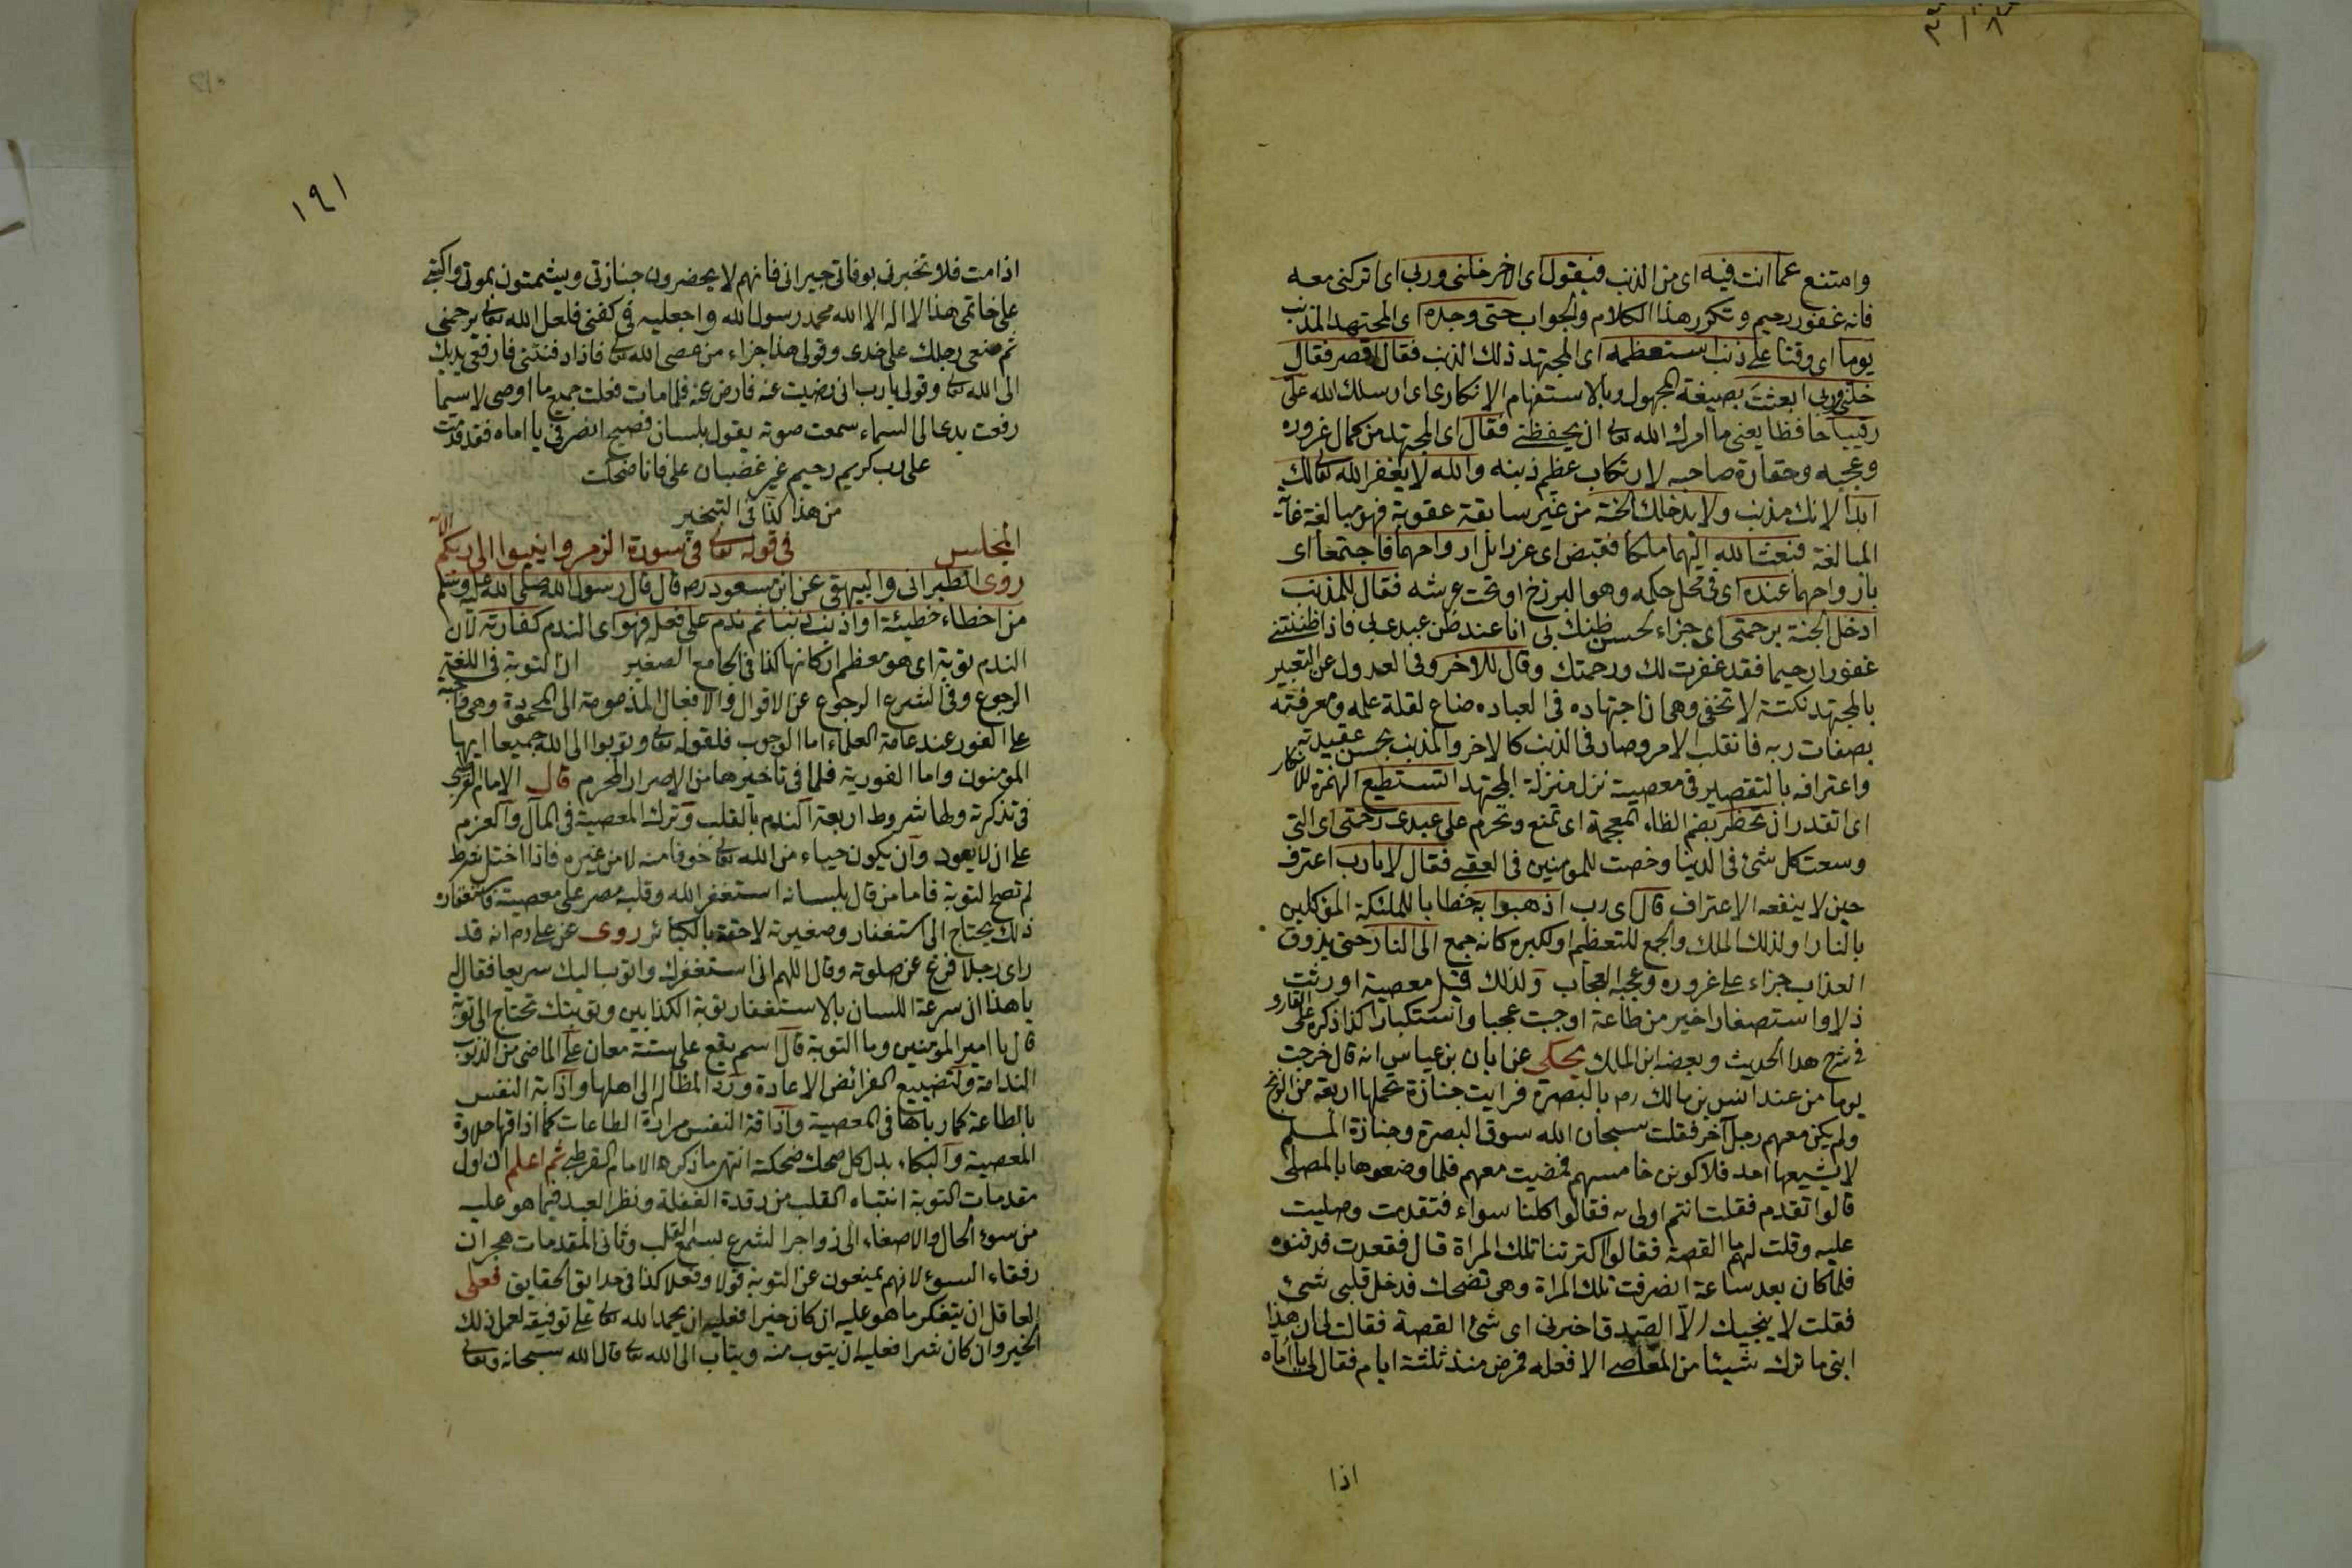 وامتنع عما انت فيه اى من الذنب فيقول اى الاخر خلنى وربى اى اتركنى معه
فانه غفور رحيم وتكرر هذا الكلام والجواب حتى وجده اى المجتهد المذنب
يوما اى وقتا على ذنب استعظمه اى المجتهد ذلك الذنب فقال اقصر فقال
خلنى وربى ابعثت بصيغة المجهول وبالاستفهام الانكارى اى ارسلك الله على
رقيبا حافظا يعنى ما امرك الله تعا ان يحفظنى فقال اى المجتهد من كمال غروره
وعجبه وحقارة صاحبه لارتكاب عظيم ذنبه والله لا يغفر الله تعالك
ابدا لانك مذنب ولا يدخلك الجنة من غير سابقة عقوبة فهو مبالغة غاية
المبالغة فبعث الله اليهما ملكا فقبض اى عزرائيل ارواحهما فاجتمعا اى
بارواحهما عنده اى فى محل حكمه وهو البرزخ او تحت عرشه فقال للمذنب
ادخل الجنة برحمتى اى جزاء لحسن ظنك بى انا عند ظن عبدى بى فاذا ظننتنى
غفورا رحيما فقد غفرت لك ورحمتك وقال للاخر وفى العدول عن التعبير
بالمجتهد نكتة لا تخفى وهى ان اجتهاده فى العباده ضاع لقلة علمه ومعرفته
بصفات ربه فانقلب الامر وصار فى الذنب كالاخر والمذنب بحسن عقيدته
واعترافه بالتقصير فى معصيته نزل منزلة المجتهد اتستطيع الهمزة للانكار
اى اتقدر ان تحظر بضم الظاء المعجمة اى تمنع وتحرم على عبدى رحمتى اى التى
وسعت كل شئ فى الدنيا وخصت للمومنين فى العقبى فقال لا يا رب اعترف
حين لا ينفعه الاعتراف قال اى رب اذهبوا به خطابا للملئكة المؤكلين
بالنار او لذلك الملك والجمع للتعظيم او لكبره كانه جمع الى النار حتى يذوق
العذاب جزاء على غروره وعجبه العجاب ولذلك قيل معصية اورثت
ذلا واستصغارا خير من طاعة اوجبت عجبا واستكبارا كذا ذكره على القارى
فى شرح هذا الحديث وبعضه ابن الملك يحكى عن ابان بن عياس انه قال خرجت
يوما من عند انس بن مالك رم بالبصرة فرايت جنازة تحملها اربعة من الزنج
ولم يكن معهم رجل آخر فقلت سبحان الله سوق البصرة وجنازة المسلم
لا يشيعها احد فلاكونن خامسهم فمضيت معهم فلما وضعوها بالمصلى
قالوا تقدم فقلت انتم اولى به فقالوا كلنا سواء فتقدمت وصليت
عليه وقلت لهم ما القصة فقالوا اكترتنا تلك المراة قال فقعدت فدفنوه
فلما كان بعد ساعة انصرفت تلك المراة وهى تضحك فدخل قلبى شئ
فقلت لا ينجيك الا الصدق اخبرنى اى شئ القصة فقالت لى ان هذا
ابنى ما ترك شيئا من المعاصى الا فعله فمرض منذ ثلثة ايام فقال لى يا اماه
اذا
١٩١
اذا مت فلا تخبرنى بوفاتى جيرانى فانهم لا يحضرون جنازتى ويشمتون بموتى واكتبى
على خاتمى هذا لا اله الا الله محمد رسول الله واجعليه فى كفنى فلعل الله تعا يرحمنى
ثم ضعى رجلك على خدى وقولى هذا جزاء من عصى الله تعا فاذا دفنتنى فارفعى يديك
الى الله تعا وقولى يا رب انى رضيت عنه فارض عنه فلما مات فعلت جميع ما اوصى لاسيما
رفعت يدى الى السماء سمعت صوته يقول بلسان فصيح انصرفى يا اماه فقد قدمت
على رب كريم رحيم غير غضبان على فانا ضحكت
من هذا كذا فى التبخير
المجلس فى قوله تعا فى سورة الزمر وانيبوا الى ربكم الآية
روى الطبرانى والبيهقى عن ابن مسعود رم قال قال رسول الله صلى الله عليه وسلم
من اخطاء خطيئة او اذنب ذنبا ثم ندم على فعله فهو اى الندم كفارته لان
الندم توبة اى هو معظم اركانها كذا فى الجامع الصغير ان التوبة فى اللغة
الرجوع وفى الشرع الرجوع عن الاقوال والافعال المذمومة الى المحمودة وهى واجبة
على الفور عند عامة العلماء اما الوجوب فلقوله تعا وتوبوا الى الله جميعا ايها
المومنون واما الفورية فلما فى تاخيرها من الاصرار المحرم قال الامام القرطبى
فى تذكرته ولها شروط اربعة الندم بالقلب وترك المعصية فى المآل والعزم
على ان لا يعود وان يكون حياء من الله تعا خوفا منه لا من غيره فاذا اختل شرط
لم تصح التوبة فاما من قال بلسانه استغفر الله وقلبه مصر على معصية فاستغفاره
ذلك يحتاج الى استغفار وصغيرته لاحقة بالكبائر روى عن على رم انه قد
راى رجلا فرغ عن صلوته وقال اللهم انى استغفرك واتوب اليك سريعا فقال له
يا هذا ان سرعة اللسان بالاستغفار توبة الكذابين وتوبتك تحتاج الى توبة
قال يا امير المومنين وما التوبة قال اسم يقع على ستة معان على الماضى من الذنوب
الندامة ولتضييع الفرائض الاعادة ورد المظالم الى اهلها واذابة النفس
بالطاعة كما رباها فى المعصية واذاقة النفس مرارة الطاعات كما اذاقها حلاوة
المعصية والبكاء بدل كل ضحك ضحكته انتهى ما ذكره الامام القرطبى ثم اعلم ان اول
مقدمات التوبة انتباه القلب من رقدة الغفلة ونظر العبد فيما هو عليه
من سوء الحال والاصغاء الى زواجر الشرع بسمع القلب وثانى المقدمات هجران
رفقاء السوء لانهم يمنعون عن التوبة قولا وفعلا كذا فى حدايق الحقايق فعلى
العاقل ان يتفكر ما هو عليه ان كان خيرا فعليه ان يحمد الله تعا على توفيقه لعمل ذلك
الخير وان كان شرا فعليه ان يتوب منه ويتاب الى الله تعا قال الله سبحانه وتعا